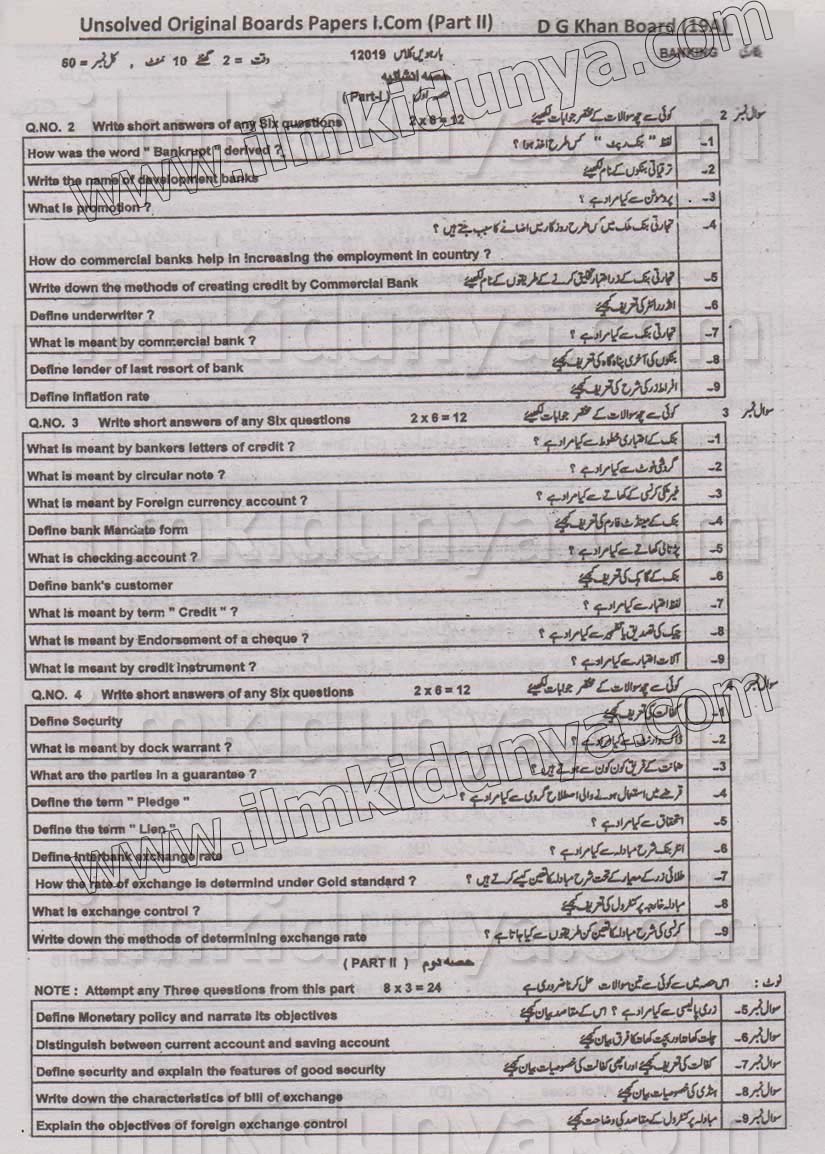 Unsolved Original Boards Papers I.Com (Part II) D G Khan Board (19A)
وقت = 2 گھنٹے 10 منٹ ، کل نمبر = 60 بارہویں کلاس 12019 BANKING
حصہ انشائیہ
(Part-I) حصہ اول
Q.NO. 2 Write short answers of any Six questions 2 x 6 = 12 کوئی سے چھ سوالات کے مختصر جوابات لکھیئے سوال نمبر 2
How was the word " Bankrupt " derived ? لفظ " بنک رپٹ " کس طرح اخذ ہوا ؟ 1-
Write the name of development banks ترقیاتی بنکوں کے نام لکھیئے 2-
What is promotion ? پروموشن سے کیا مراد ہے ؟ 3-
تجارتی بنک ملک میں کس طرح روزگار میں اضافے کا سبب بنتے ہیں ؟ 4-
How do commercial banks help in increasing the employment in country ?
Write down the methods of creating credit by Commercial Bank تجارتی بنک کے زر اعتبار تخلیق کرنے کے طریقوں کے نام لکھیئے 5-
Define underwriter ? انڈر رائٹر کی تعریف کیجئے 6-
What is meant by commercial bank ? تجارتی بنک سے کیا مراد ہے ؟ 7-
Define lender of last resort of bank بنکوں کی آخری پناہ گاہ کی تعریف کیجئے 8-
Define Inflation rate افراط زر کی شرح کی تعریف کیجئے 9-
Q.NO. 3 Write short answers of any Six questions 2 x 6 = 12 کوئی سے چھ سوالات کے مختصر جوابات لکھیئے سوال نمبر 3
What is meant by bankers letters of credit ? بنک کے اعتباری خطوط سے کیا مراد ہے ؟ 1-
What is meant by circular note ? گردشی نوٹ سے کیا مراد ہے ؟ 2-
What is meant by Foreign currency account ? غیر ملکی کرنسی کے کھاتے سے کیا مراد ہے ؟ 3-
Define bank Mandate form بنک کے مینڈیٹ فارم کی تعریف کیجئے 4-
What is checking account ? پڑتالی کھاتے سے کیا مراد ہے ؟ 5-
Define bank's customer بنک کے گاہک کی تعریف کیجئے 6-
What is meant by term " Credit " ? لفظ اعتبار سے کیا مراد ہے ؟ 7-
What is meant by Endorsement of a cheque ? چیک کی تصدیق یا تظہیر سے کیا مراد ہے ؟ 8-
What is meant by credit instrument ? آلات اعتبار سے کیا مراد ہے ؟ 9-
Q.NO. 4 Write short answers of any Six questions 2 x 6 = 12 کوئی سے چھ سوالات کے مختصر جوابات لکھیئے سوال نمبر 4
Define Security کفالت کی تعریف کیجئے 1-
What is meant by dock warrant ? ڈاک وارنٹ سے کیا مراد ہے ؟ 2-
What are the parties in a guarantee ? ضمانت کے فریق کون کون سے ہوتے ہیں ؟ 3-
Define the term " Pledge " قرضے میں استعمال ہونے والی اصطلاح گروی سے کیا مراد ہے ؟ 4-
Define the term " Lien " استحقاق سے کیا مراد ہے ؟ 5-
Define interbank exchange rate انٹر بنک شرح مبادلہ سے کیا مراد ہے ؟ 6-
How the rate of exchange is determind under Gold standard ? طلائی زر کے معیار کے تحت شرح مبادلہ کا تعین کیسے کرتے ہیں ؟ 7-
What is exchange control ? مبادلہ خارجہ پر کنٹرول کی تعریف کیجئے 8-
Write down the methods of determining exchange rate کرنسی کی شرح مبادلہ کا تعین کن طریقوں سے کیا جاتا ہے ؟ 9-
( PART II ) حصہ دوم
NOTE : Attempt any Three questions from this part 8 x 3 = 24 اس حصہ میں سے کوئی سے تین سوالات حل کرنا ضروری ہے نوٹ :
Define Monetary policy and narrate its objectives زری پالیسی سے کیا مراد ہے ؟ اس کے مقاصد بیان کیجئے سوال نمبر 5-
Distinguish between current account and saving account چلت کھاتہ اور بچت کھاتہ کا فرق بیان کیجئے سوال نمبر 6-
Define security and explain the features of good security کفالت کی تعریف کیجئے اور اچھی کفالت کی خصوصیات بیان کیجئے سوال نمبر 7-
Write down the characteristics of bill of exchange ہنڈی کی خصوصیات بیان کیجئے سوال نمبر 8-
Explain the objectives of foreign exchange control مبادلہ پر کنٹرول کے مقاصد کی وضاحت کیجئے سوال نمبر 9-
www.ilmkidunya.com
www.ilmkidunya.com
ilmkidunya.com
ilmkidunya.com
ilmkidunya.com
ilmkidunya.com
ilmkidunya.com